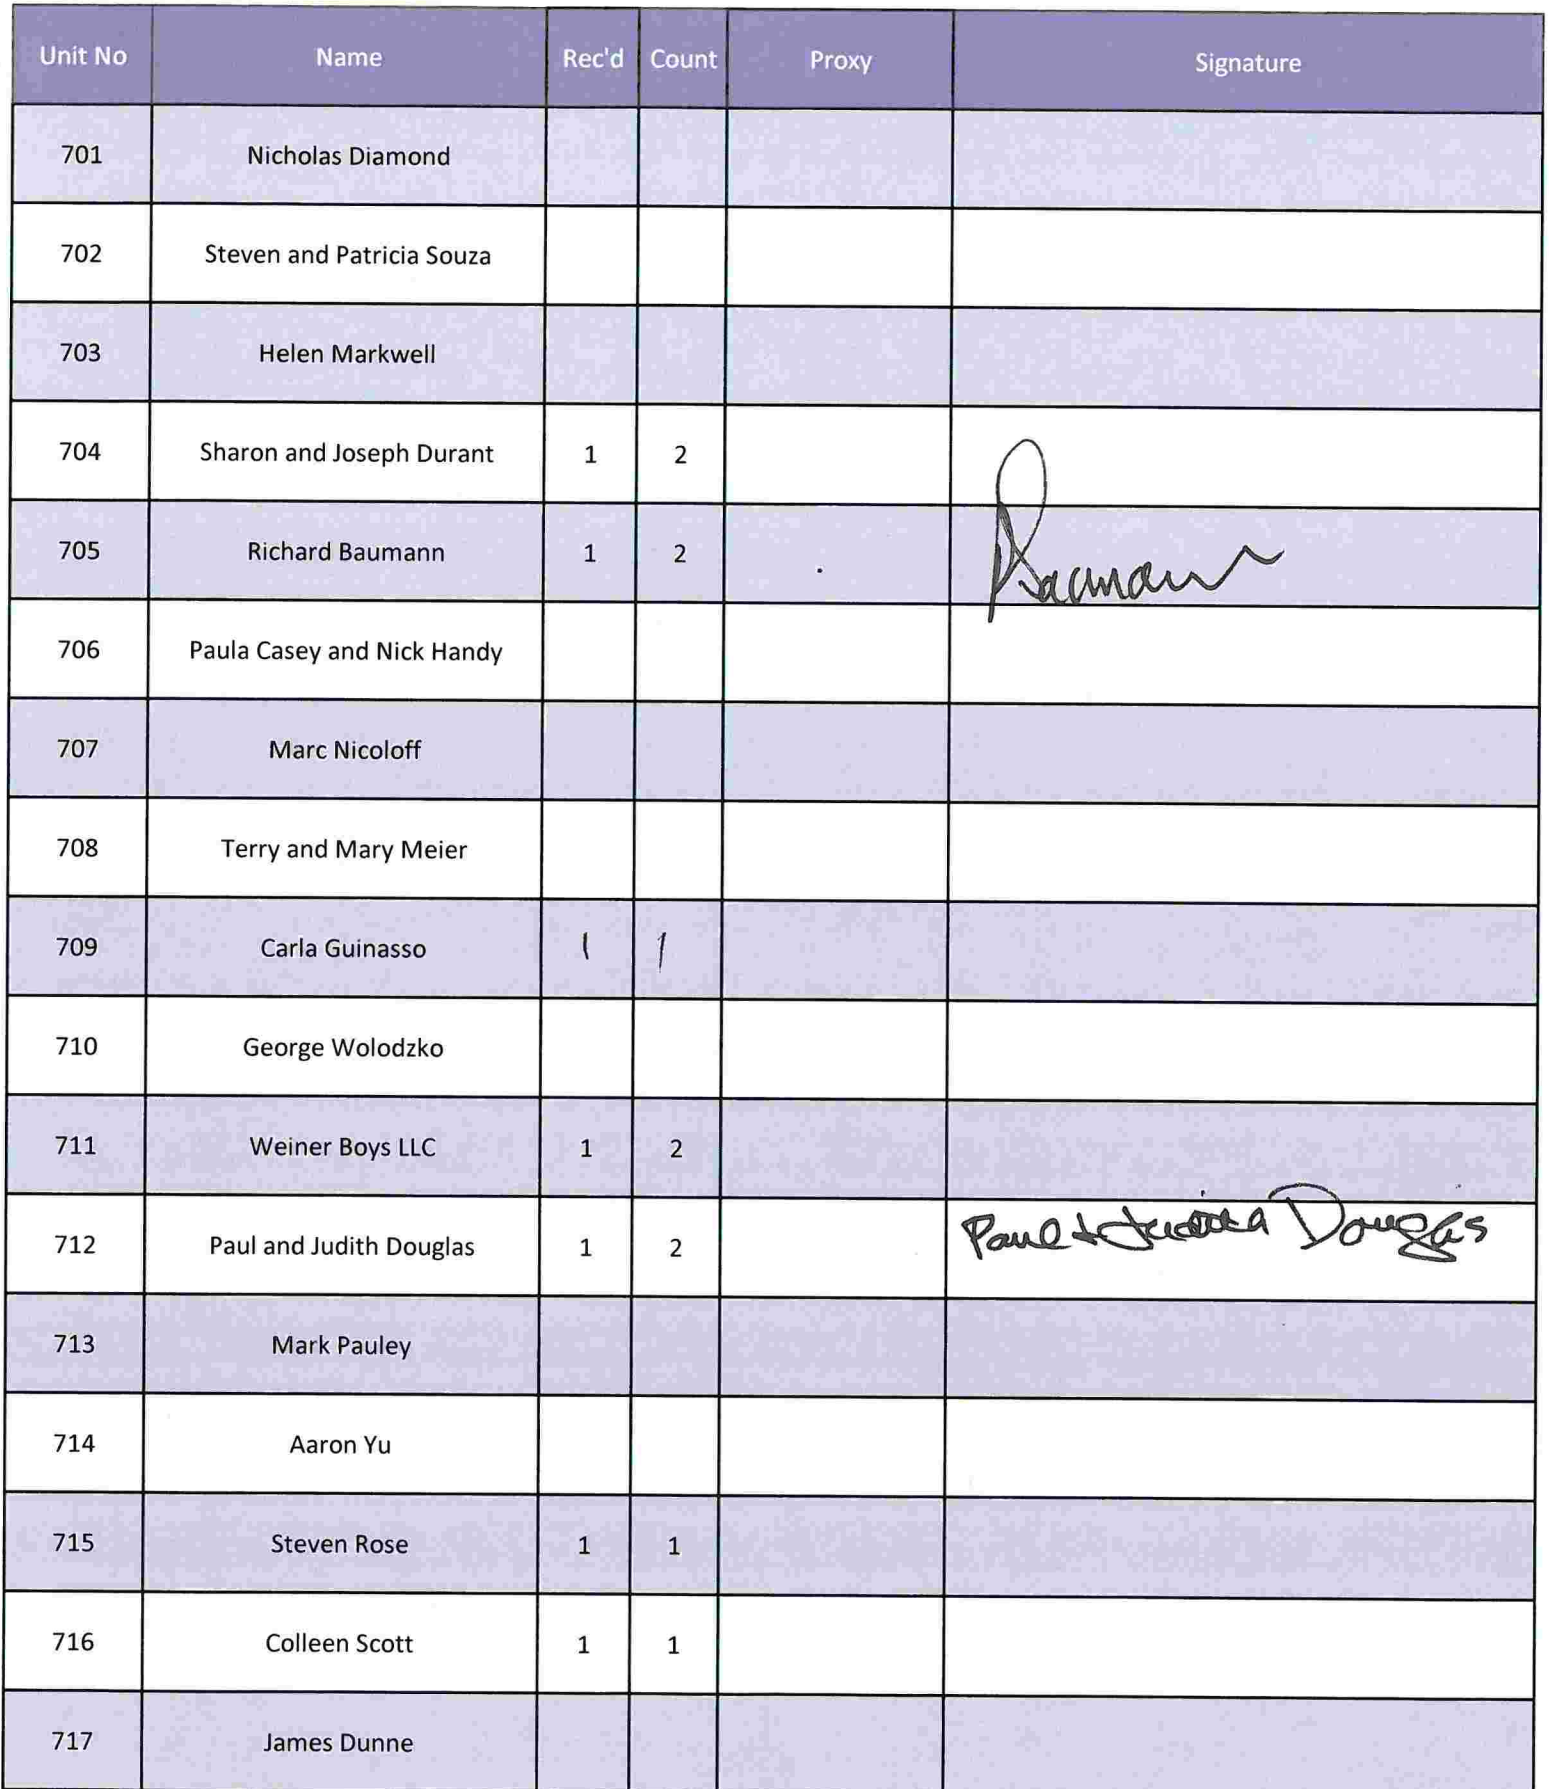 Unit No Name Rec'd Count Proxy Signature
701 Nicholas Diamond
702 Steven and Patricia Souza
703 Helen Markwell
704 Sharon and Joseph Durant 1 2
705 Richard Baumann 1 2 Baumann
706 Paula Casey and Nick Handy
707 Marc Nicoloff
708 Terry and Mary Meier
709 Carla Guinasso 1 1
710 George Wolodzko
711 Weiner Boys LLC 1 2
712 Paul and Judith Douglas 1 2 Paul + Judith Douglas
713 Mark Pauley
714 Aaron Yu
715 Steven Rose 1 1
716 Colleen Scott 1 1
717 James Dunne